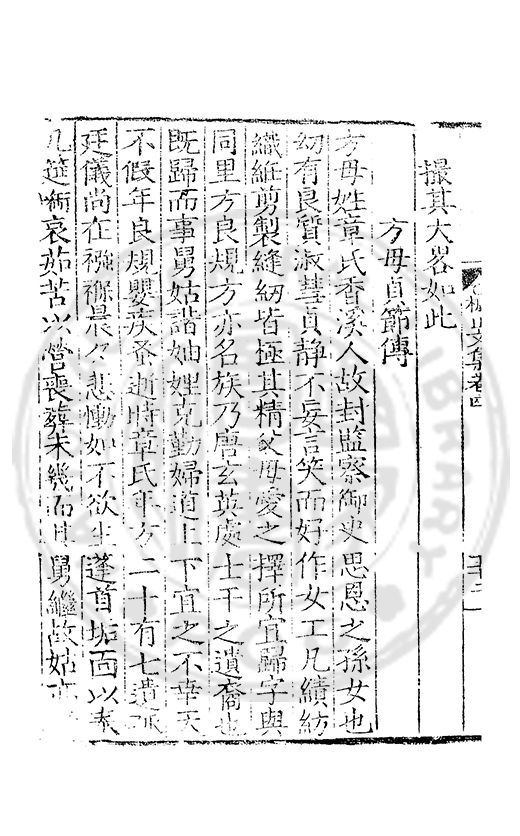 撮其大畧如此
方母貞節傳
方母姓章氏香溪人故封監察御史思恩之孫女也
幼有良質淑慧貞静不妄言笑而好作女工凡績紡
織紝剪製縫紉皆極其精父母愛之擇所宜歸字與
同里方良規方亦名族乃唐玄英處士干之遺裔也
既歸而事舅姑諧妯娌克勤婦道上下宜之不幸天
不假年良規嬰疾蚤逝時章氏年方二十有七遺孤
廷儀尚在襁褓晨夕悲慟如不欲生蓬首垢面以奉
几筵啣哀茹苦以營喪葬未幾而舅繼故姑